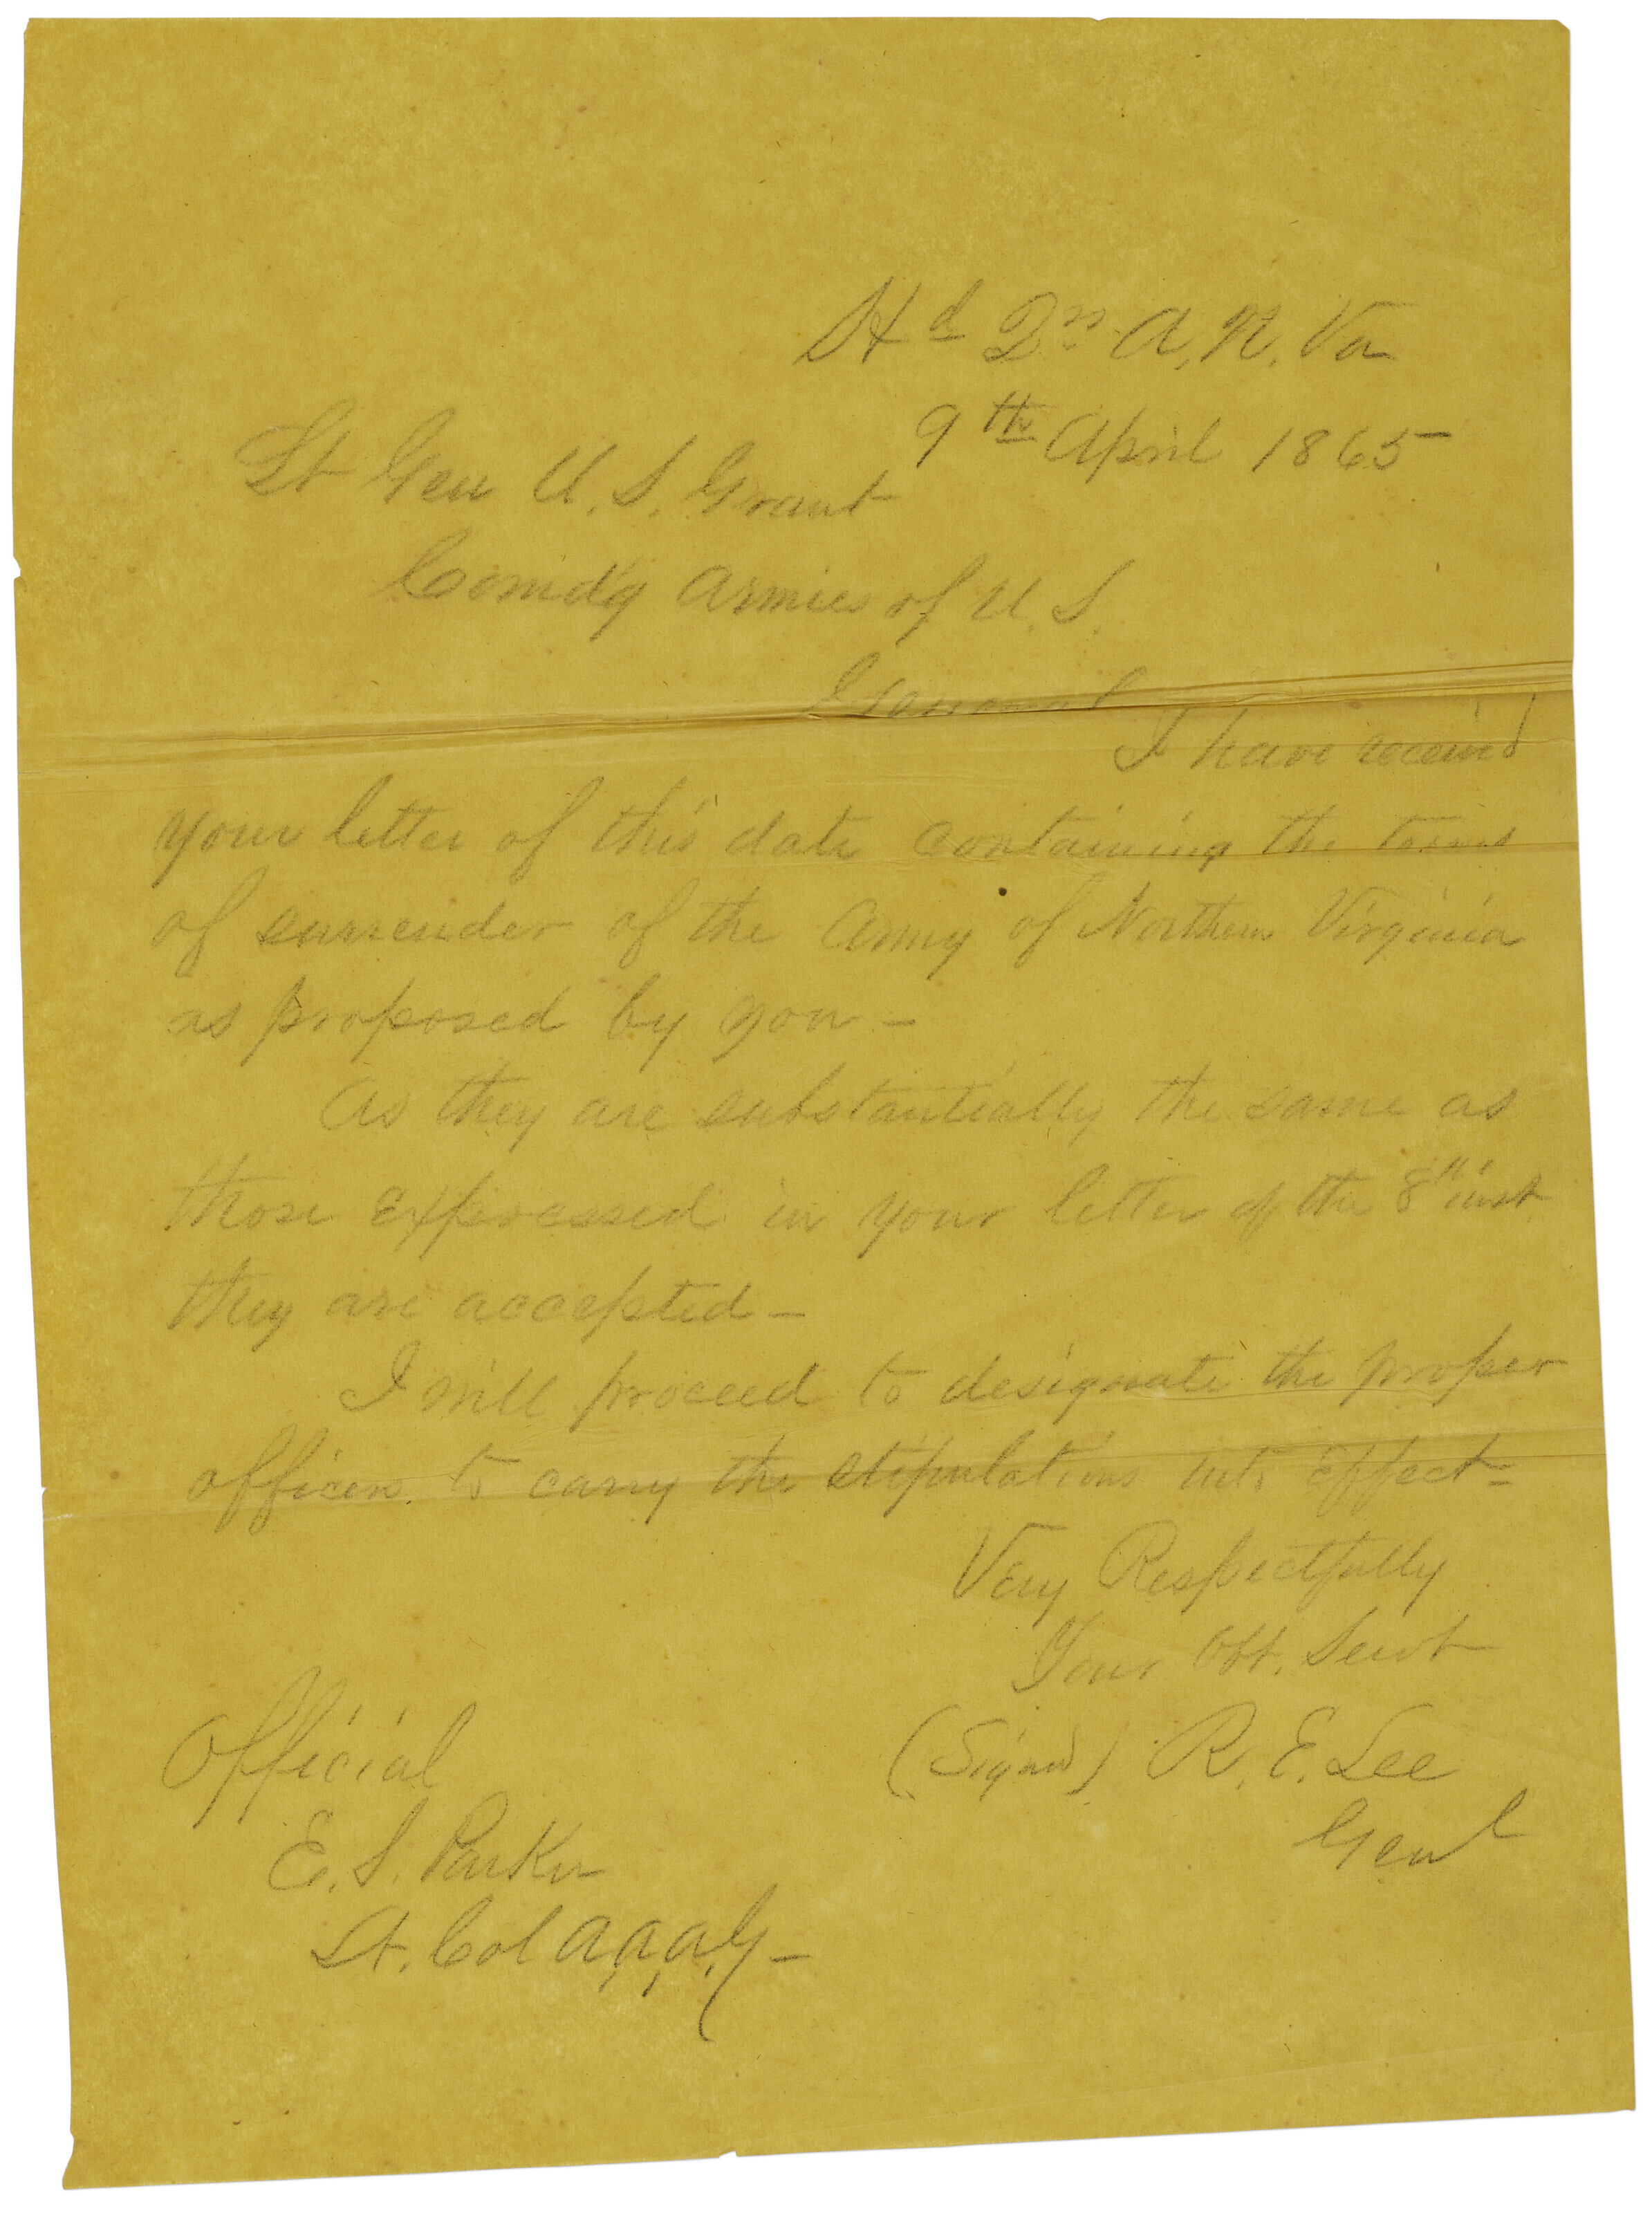 Hd Qrs A. N. Va
9th April 1865
Lt Gen U. S. Grant
Comd'g Armies of U. S.
General
I have receiv'd
your letter of this date containing the terms
of surrender of the Army of Northern Virginia
as proposed by you –
As they are substantially the same as
those expressed in your letter of the 8th inst
they are accepted –
I will proceed to designate the proper
officers to carry the stipulations into effect –
Very Respectfully
Your Obt. Servt
(Signed) R. E. Lee
Genl
Official
E. S. Parker
Lt. Col A, A, A, G –